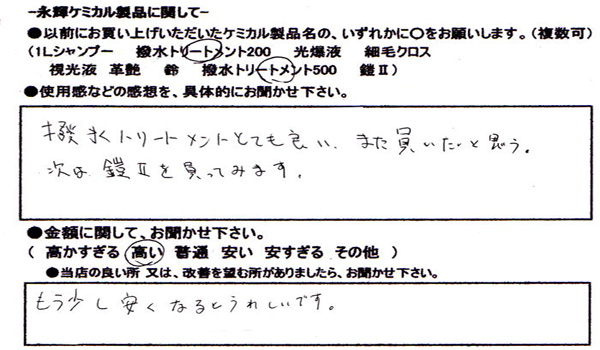 -永輝ケミカル製品に関して-
●以前にお買い上げいただいたケミカル製品名の、いずれかに〇をお願いします。（複数可）
（1Lシャンプー 撥水トリートメント200 光爆液 細毛クロス
視光液 革艶 鈴 撥水トリートメント500 鎧Ⅱ）
●使用感などの感想を、具体的にお聞かせ下さい。
撥水トリートメントとても良い、また買いたいと思う。
次は鎧Ⅱを買ってみます。
●金額に関して、お聞かせ下さい。
（ 高かすぎる 高い 普通 安い 安すぎる その他 ）
●当店の良い所 又は、改善を望む所がありましたら、お聞かせ下さい。
もう少し安くなるとうれしいです。